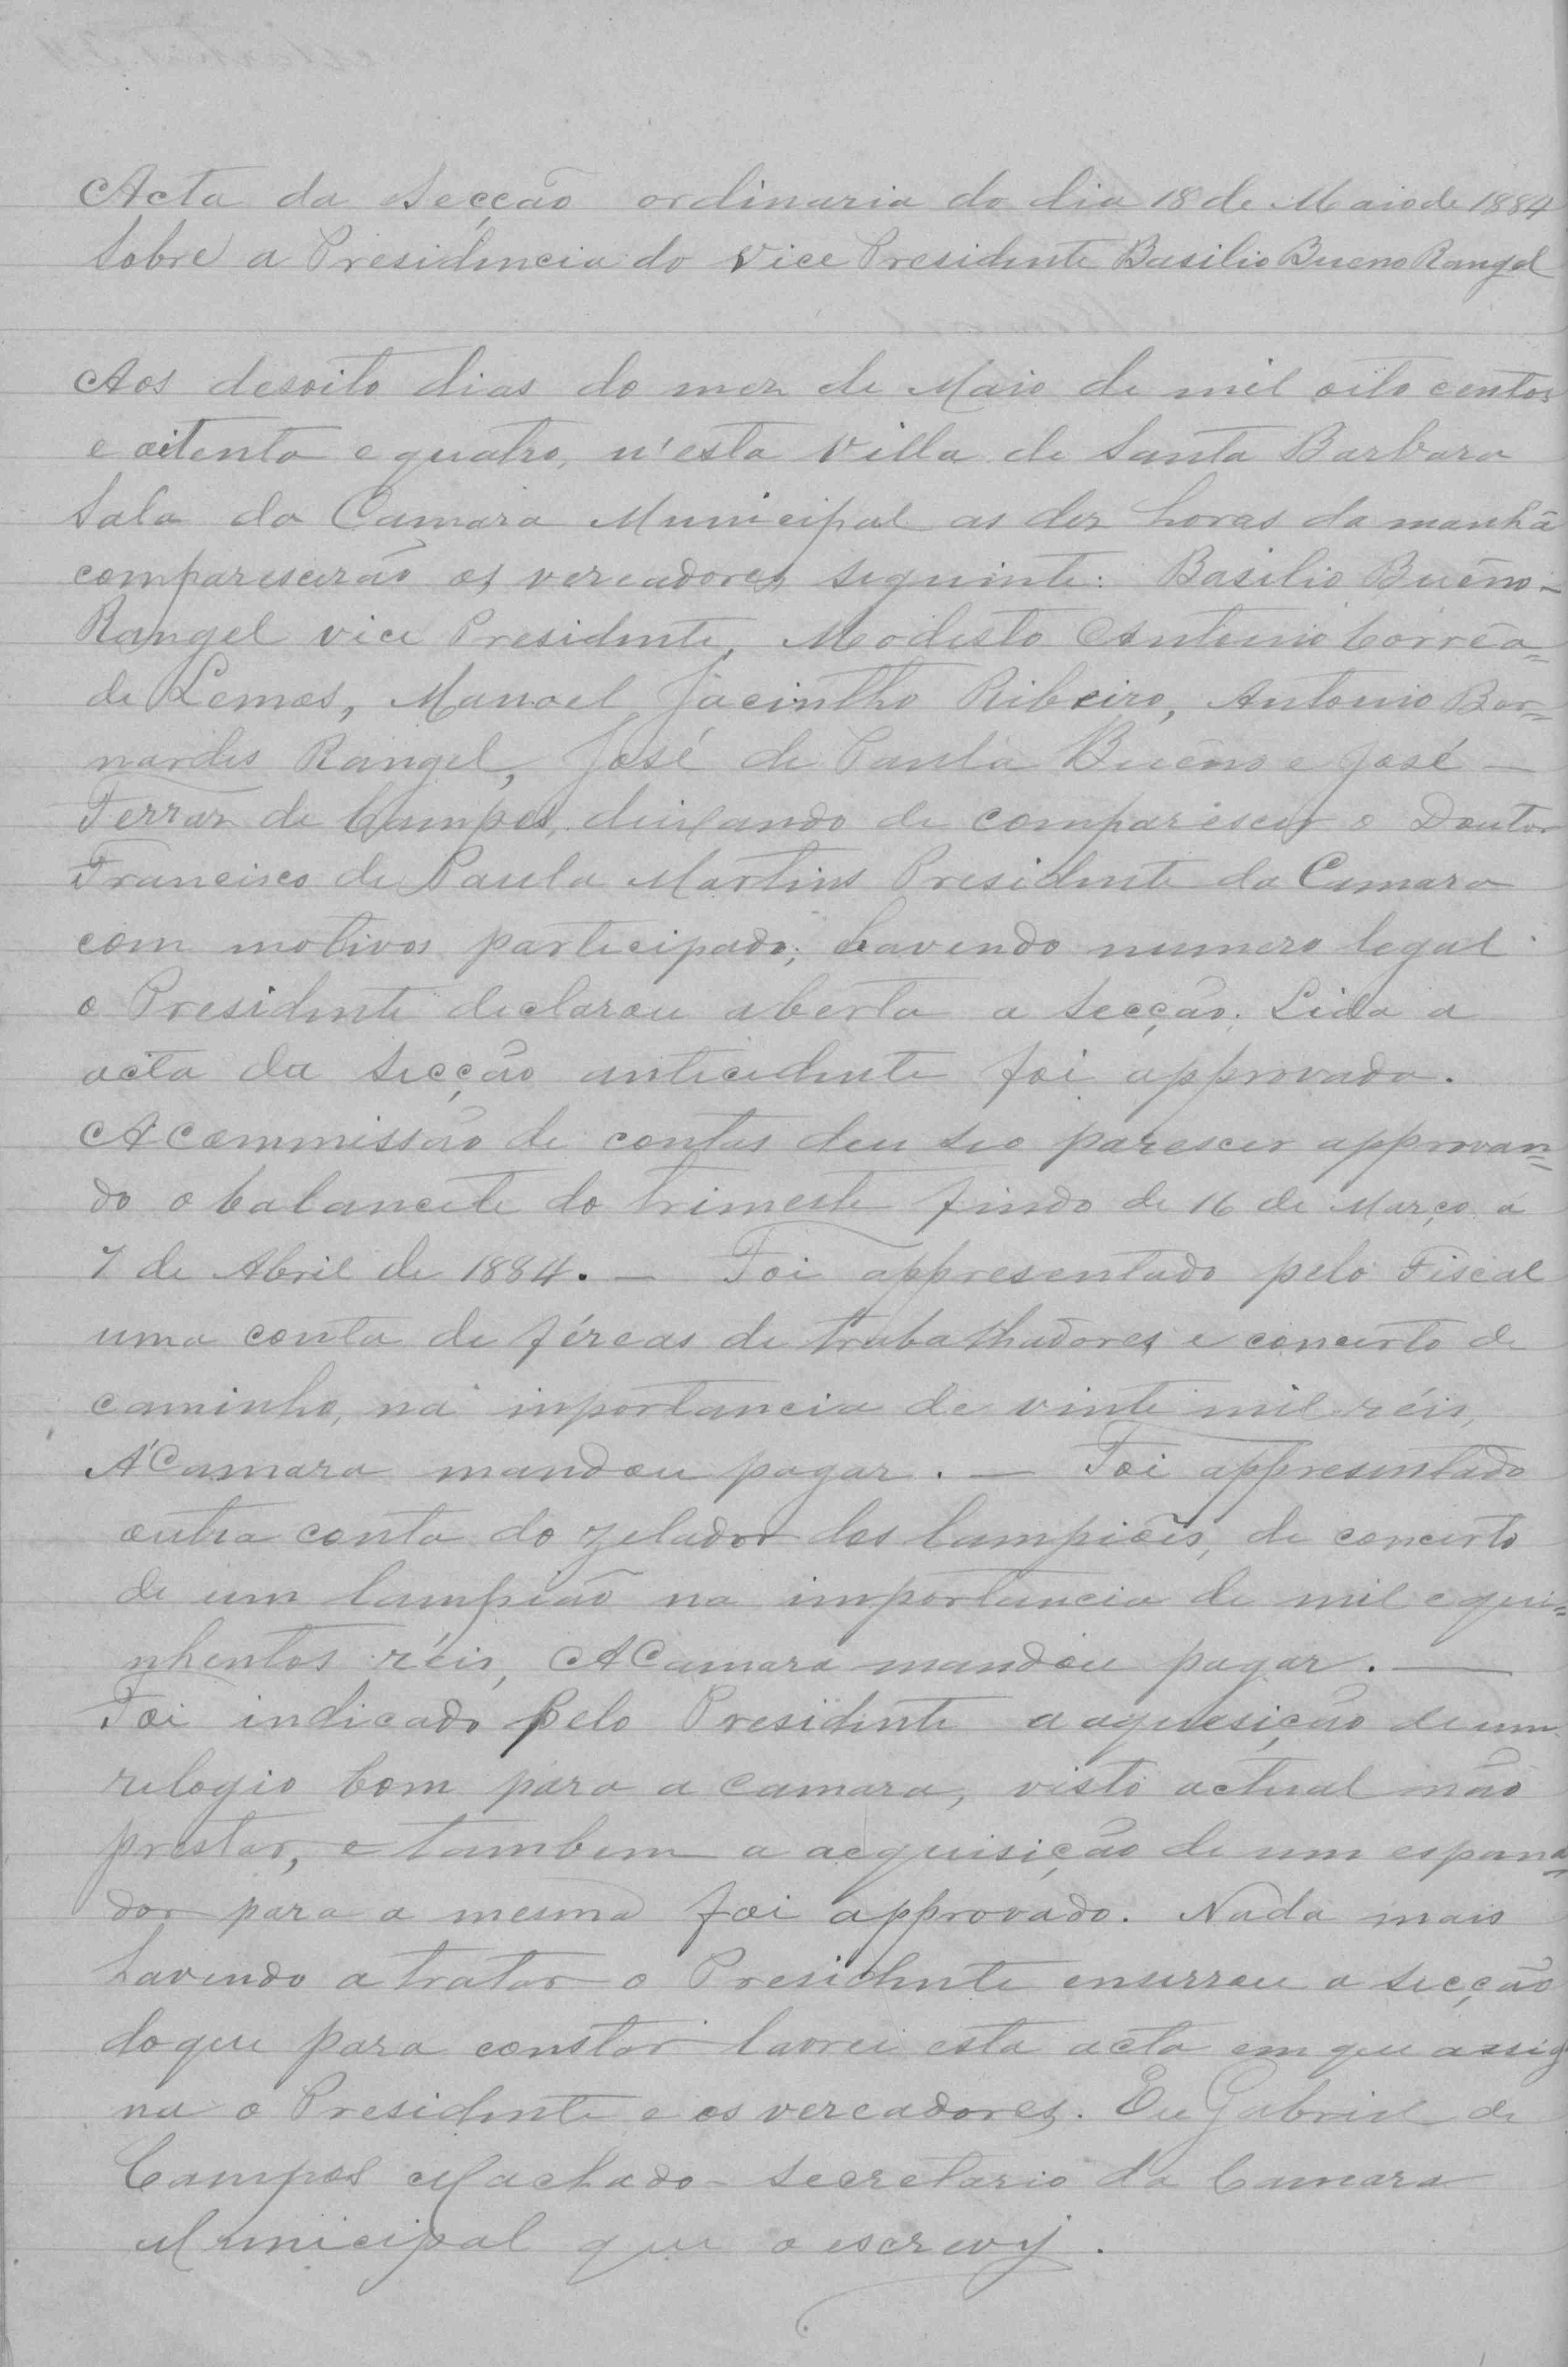 Acta da Secção ordinaria do dia 18 de Maio de 1884
Sobre a Presidencia do Vice Presidente Basilio Bueno Rangel
Aos desoito dias do mez de Maio de mil oito centos
e oitenta e quatro, n'esta Villa de Santa Barbara
Sala da Camara Municipal as dez horas da manhã
comparescerão os vereadores seguinte: Basilio Bueno-
Rangel vice Presidente, Modesto Antonio Corrêa=
de Lemos, Manoel Jacintho Ribeiro, Antonio Ber=
nardes Rangel, José de Paula Bueno e José —
Ferraz de Campos, deixando de comparescer o Doutor
Francisco de Paula Martins Presidente da Camara
com motivos participado; havendo numero legal
o Presidente declarou aberta a secção. Lida a
acta da secção antecedente foi approvada.
A Commissão de contas deu seo parescer approvan=
do o balancete do trimeste findo de 16 de Março a
7 de Abril de 1884. — Foi appresentado pelo Fiscal
uma conta de féreas de trabalhadores e concerto de
caminho, na inportancia de vinte mil réis,
A Camara mandou pagar. — Foi appresentado
outra conta do zelador dos lampiões, de concerto
de um lampião na importancia de mil e qui=
nhentos réis, A Camara mandou pagar. —
Foi indicado pelo Presidente a aquesição de um
relogio bom para a Camara, visto actual não
prestar, e tambem a acquisição de um espana=
dor para a mesma foi approvado. Nada mais
havendo a tratar o Presidente enserrou a secção
do que para constar lavrei esta acta em que assig
na o Presidente e os vereadores. Eu Gabriel de
Campos Machado secretario da Camara
Municipal que o escrevy.